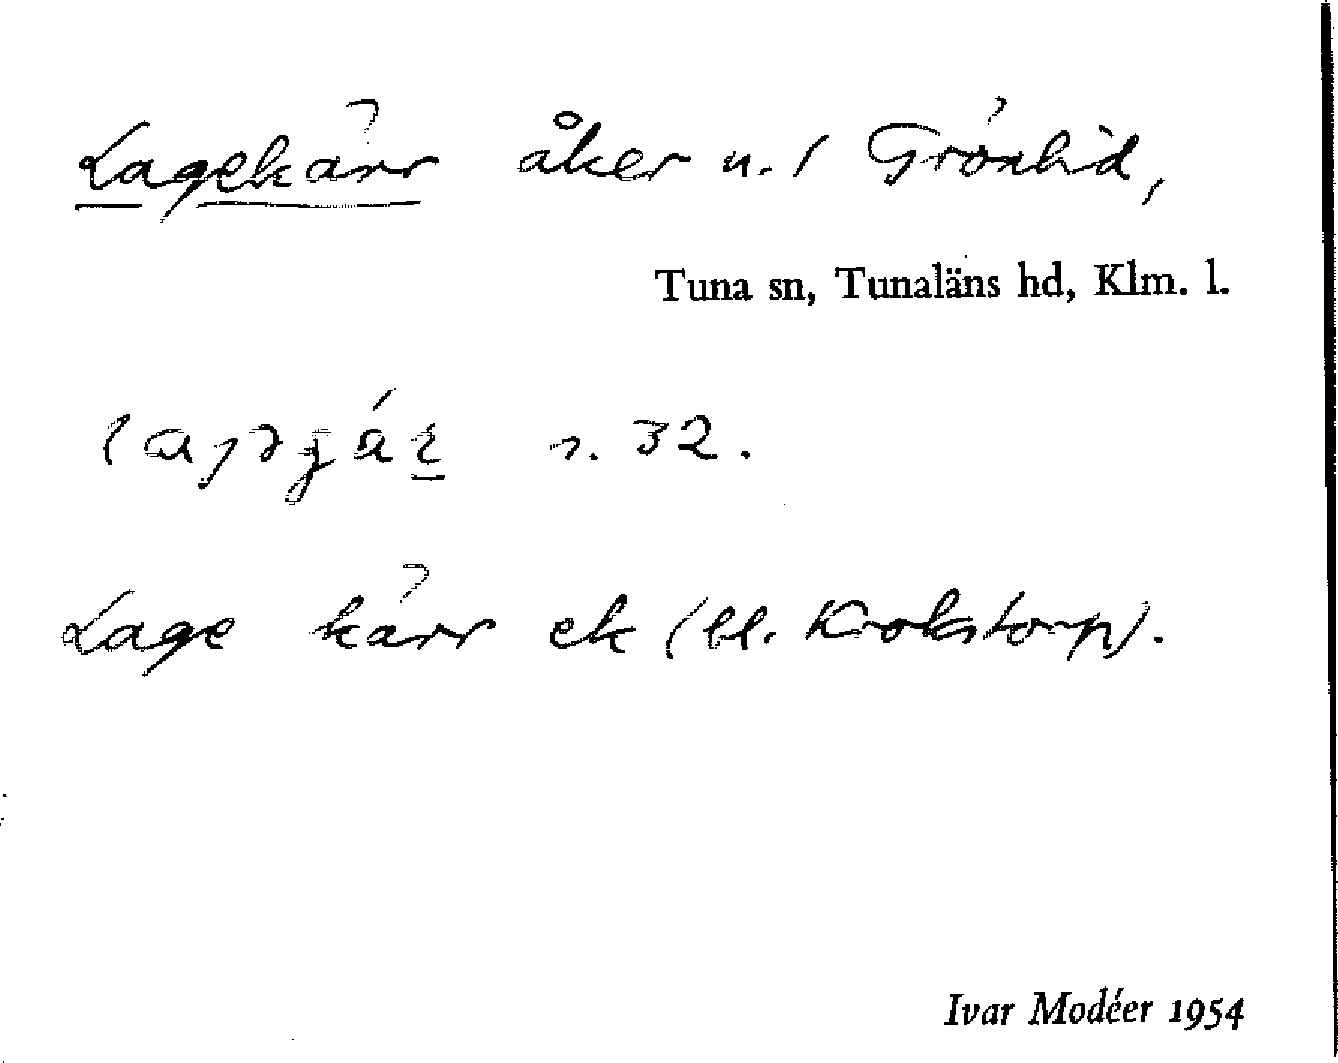 Lagekärr åker u. / Grönlid,
Tuna sn, Tunaläns hd, Klm. l.
32.
Lage kärr ek (bl. Krokstorp).
Ivar Modéer 1954